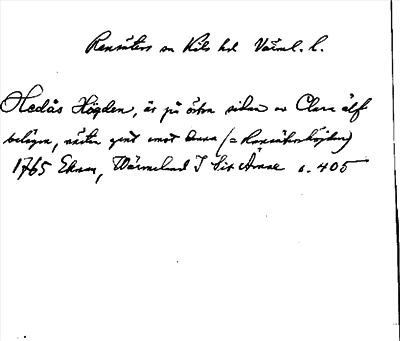 Rensäters sn Kils hd Värml. l.
Hedås Högden, är på östra sidan av Clara älf
belägen, nästan gent emot denna (= Runsäterhöjden)
1765 Ekman, Wärmeland I Sit Amne s. 405